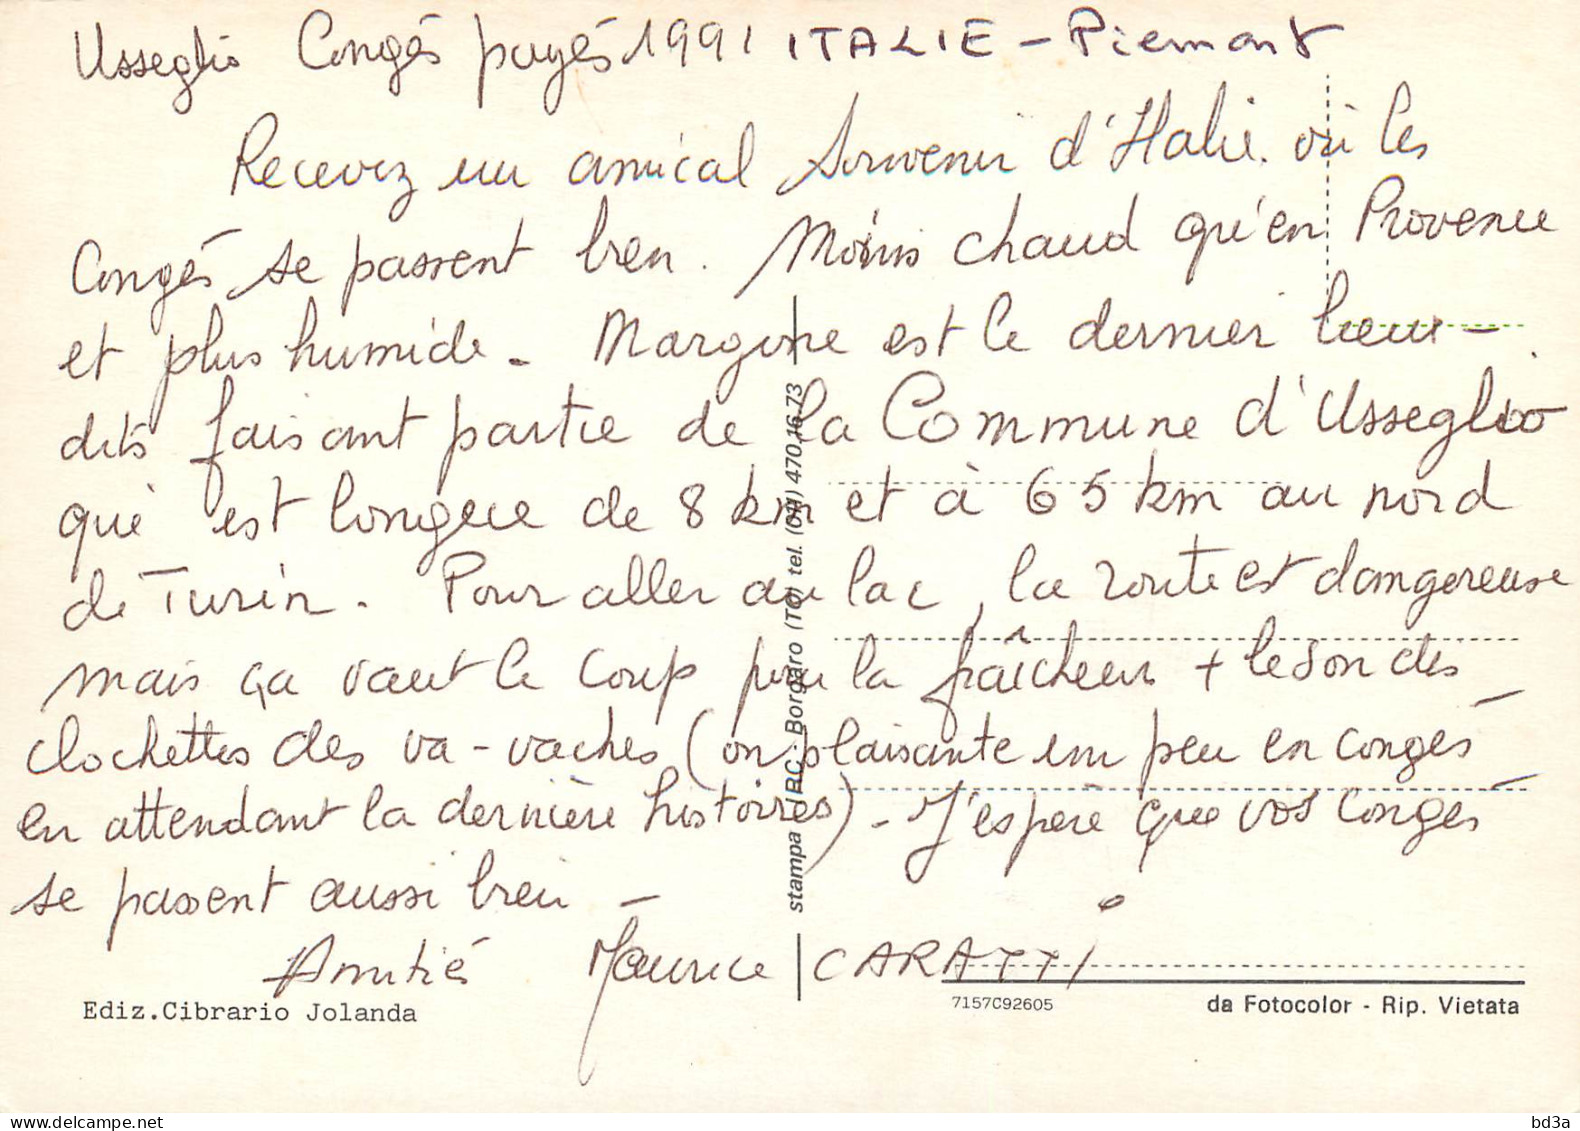 Usseglio Congés payés 1991 ITALIE - Piemont
Recevez un amical Souvenir d'Italie. où les
Congés se passent bien. Moins chaud qu'en Provence
et plus humide - Margone est le dernier lieu-
dits faisant partie de la Commune d'Usseglio
qui est longue de 8 km et à 65 km au nord
de Turin. Pour aller au lac, la route est dangereuse
mais ça vaut le coup pour la fraîcheur + le son des
clochettes des va-vaches (on plaisante un peu en congés
en attendant la dernière histoires) - J'espère que vos congés
se passent aussi bien -
Amitiés Maurice CARATTI
stampa IRC - Borgaro (TO) tel. (011) 470.16.73
Ediz.Cibrario Jolanda
7157C92605
da Fotocolor - Rip. Vietata
bd3a